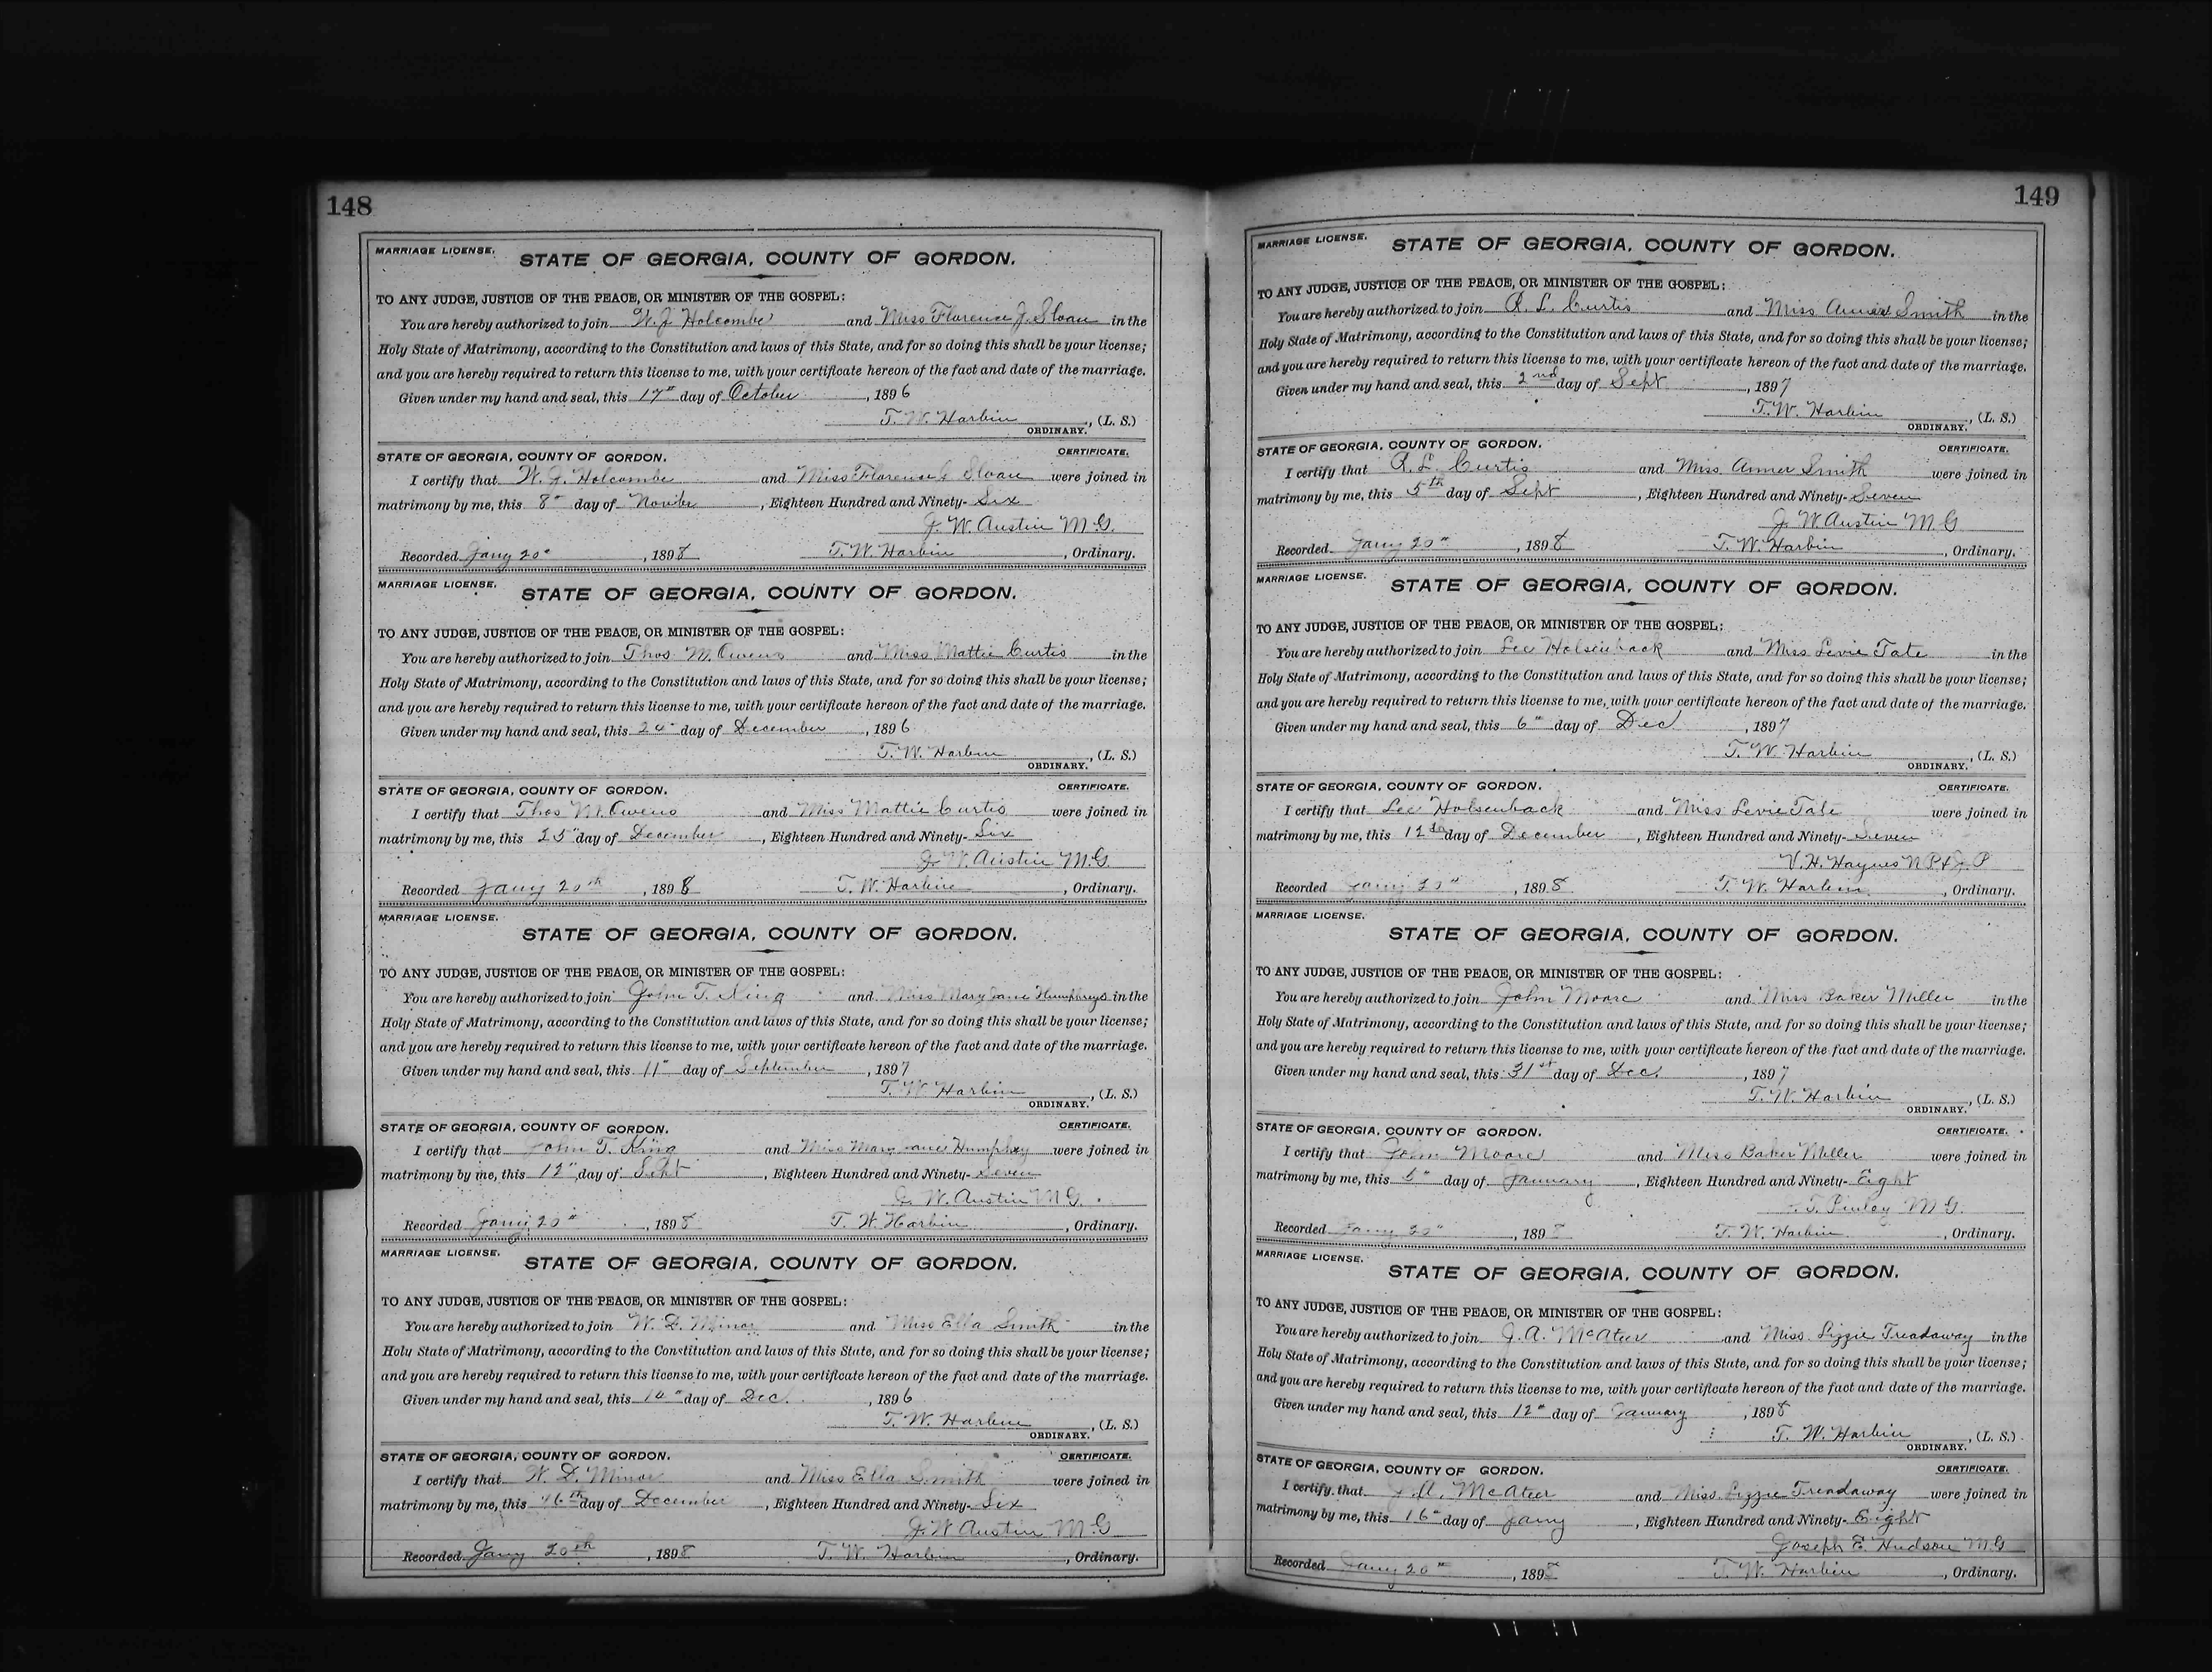 148
MARRIAGE LICENSE.
STATE OF GEORGIA, COUNTY OF GORDON.
TO ANY JUDGE, JUSTICE OF THE PEACE, OR MINISTER OF THE GOSPEL:
You are hereby authorized to join W. J. Holcombe and Miss Florence J. Sloan in the
Holy State of Matrimony, according to the Constitution and laws of this State, and for so doing this shall be your license;
and you are hereby required to return this license to me, with your certificate hereon of the fact and date of the marriage.
Given under my hand and seal, this 17" day of October, 1896
T. W. Harbin, (L. S.)
ORDINARY.
STATE OF GEORGIA, COUNTY OF GORDON. CERTIFICATE.
I certify that W. J. Holcombe and Miss Florence J. Sloan were joined in
matrimony by me, this 8" day of Novbr, Eighteen Hundred and Ninety-Six
J. W. Austin M.G.
Recorded Jany 20", 1898 T. W. Harbin, Ordinary.
MARRIAGE LICENSE.
STATE OF GEORGIA, COUNTY OF GORDON.
TO ANY JUDGE, JUSTICE OF THE PEACE, OR MINISTER OF THE GOSPEL:
You are hereby authorized to join Thos M. Owens and Miss Mattie Curtis in the
Holy State of Matrimony, according to the Constitution and laws of this State, and for so doing this shall be your license;
and you are hereby required to return this license to me, with your certificate hereon of the fact and date of the marriage.
Given under my hand and seal, this day of December, 1896
T. W. Harbin, (L. S.)
ORDINARY.
STATE OF GEORGIA, COUNTY OF GORDON. CERTIFICATE.
I certify that Thos M. Owens and Miss Mattie Curtis were joined in
matrimony by me, this 25" day of December, Eighteen Hundred and Ninety-Six
J. W. Austin M.G.
Recorded Jany 20th, 1898 T. W. Harbin, Ordinary.
MARRIAGE LICENSE.
STATE OF GEORGIA, COUNTY OF GORDON.
TO ANY JUDGE, JUSTICE OF THE PEACE, OR MINISTER OF THE GOSPEL:
You are hereby authorized to join John T. King and Miss Mary Jane Humphreys in the
Holy State of Matrimony, according to the Constitution and laws of this State, and for so doing this shall be your license;
and you are hereby required to return this license to me, with your certificate hereon of the fact and date of the marriage.
Given under my hand and seal, this 11" day of September, 1897
T. W. Harbin, (L. S.)
ORDINARY.
STATE OF GEORGIA, COUNTY OF GORDON. CERTIFICATE.
I certify that John T. King and Miss Mary Jane Humphrey were joined in
matrimony by me, this 12" day of Sept, Eighteen Hundred and Ninety-Seven
J. W. Austin M.G.
Recorded Jany 20", 1898 T. W. Harbin, Ordinary.
MARRIAGE LICENSE.
STATE OF GEORGIA, COUNTY OF GORDON.
TO ANY JUDGE, JUSTICE OF THE PEACE, OR MINISTER OF THE GOSPEL:
You are hereby authorized to join W. D. Minor and Miss Ella Smith in the
Holy State of Matrimony, according to the Constitution and laws of this State, and for so doing this shall be your license;
and you are hereby required to return this license to me, with your certificate hereon of the fact and date of the marriage.
Given under my hand and seal, this day of Dec., 1896
T. W. Harbin, (L. S.)
ORDINARY.
STATE OF GEORGIA, COUNTY OF GORDON. CERTIFICATE.
I certify that W. D. Minor and Miss Ella Smith were joined in
matrimony by me, this 16th day of December, Eighteen Hundred and Ninety-Six
J. W. Austin M.G
Recorded Jany 20th, 1898 T. W. Harbin, Ordinary.
149
MARRIAGE LICENSE.
STATE OF GEORGIA, COUNTY OF GORDON.
TO ANY JUDGE, JUSTICE OF THE PEACE, OR MINISTER OF THE GOSPEL:
You are hereby authorized to join R. L. Curtis and Miss Smith in the
Holy State of Matrimony, according to the Constitution and laws of this State, and for so doing this shall be your license;
and you are hereby required to return this license to me, with your certificate hereon of the fact and date of the marriage.
Given under my hand and seal, this 2nd day of Sept, 1897
T. W. Harbin, (L. S.)
ORDINARY.
STATE OF GEORGIA, COUNTY OF GORDON. CERTIFICATE.
I certify that R. L. Curtis and Miss Anner Smith were joined in
matrimony by me, this 5th day of Sept, Eighteen Hundred and Ninety-Seven
J. W Austin M.G
Recorded Jany 20", 1898 T. W. Harbin, Ordinary.
MARRIAGE LICENSE.
STATE OF GEORGIA, COUNTY OF GORDON.
TO ANY JUDGE, JUSTICE OF THE PEACE, OR MINISTER OF THE GOSPEL:
You are hereby authorized to join Lee Holsenback and Miss Levie Tate in the
Holy State of Matrimony, according to the Constitution and laws of this State, and for so doing this shall be your license;
and you are hereby required to return this license to me, with your certificate hereon of the fact and date of the marriage.
Given under my hand and seal, this 6" day of Dec, 1897
T. W. Harbin, (L. S.)
ORDINARY.
STATE OF GEORGIA, COUNTY OF GORDON. CERTIFICATE.
I certify that Lee Holsenback and Miss Levie Tate were joined in
matrimony by me, this 12 day of December, Eighteen Hundred and Ninety-Seven
V. H. Haynes N P & J. P
Recorded Jany 20", 1898 T. W. Harbin, Ordinary.
MARRIAGE LICENSE.
STATE OF GEORGIA, COUNTY OF GORDON.
TO ANY JUDGE, JUSTICE OF THE PEACE, OR MINISTER OF THE GOSPEL:
You are hereby authorized to join John Moore and Miss Baker Miller in the
Holy State of Matrimony, according to the Constitution and laws of this State, and for so doing this shall be your license;
and you are hereby required to return this license to me, with your certificate hereon of the fact and date of the marriage.
Given under my hand and seal, this 31st day of Dec., 1897
T. W. Harbin, (L. S.)
ORDINARY.
STATE OF GEORGIA, COUNTY OF GORDON. CERTIFICATE.
I certify that John Moore and Miss Baker Miller were joined in
matrimony by me, this 5" day of January, Eighteen Hundred and Ninety-Eight
T. Finley M G.
Recorded Jany 20", 1898 T. W. Harbin, Ordinary.
MARRIAGE LICENSE.
STATE OF GEORGIA, COUNTY OF GORDON.
TO ANY JUDGE, JUSTICE OF THE PEACE, OR MINISTER OF THE GOSPEL:
You are hereby authorized to join J. A. McAteer and Miss Lizzie Treadaway in the
Holy State of Matrimony, according to the Constitution and laws of this State, and for so doing this shall be your license;
and you are hereby required to return this license to me, with your certificate hereon of the fact and date of the marriage.
Given under my hand and seal, this 12" day of January, 1898
T. W. Harbin, (L. S.)
ORDINARY.
STATE OF GEORGIA, COUNTY OF GORDON. CERTIFICATE.
I certify that J. A. McAteer and Miss Lizzie Treadaway were joined in
matrimony by me, this 16" day of Jany, Eighteen Hundred and Ninety-Eight
Joseph E. Hudson M.G
Recorded Jany 20", 1898 T. W. Harbin, Ordinary.